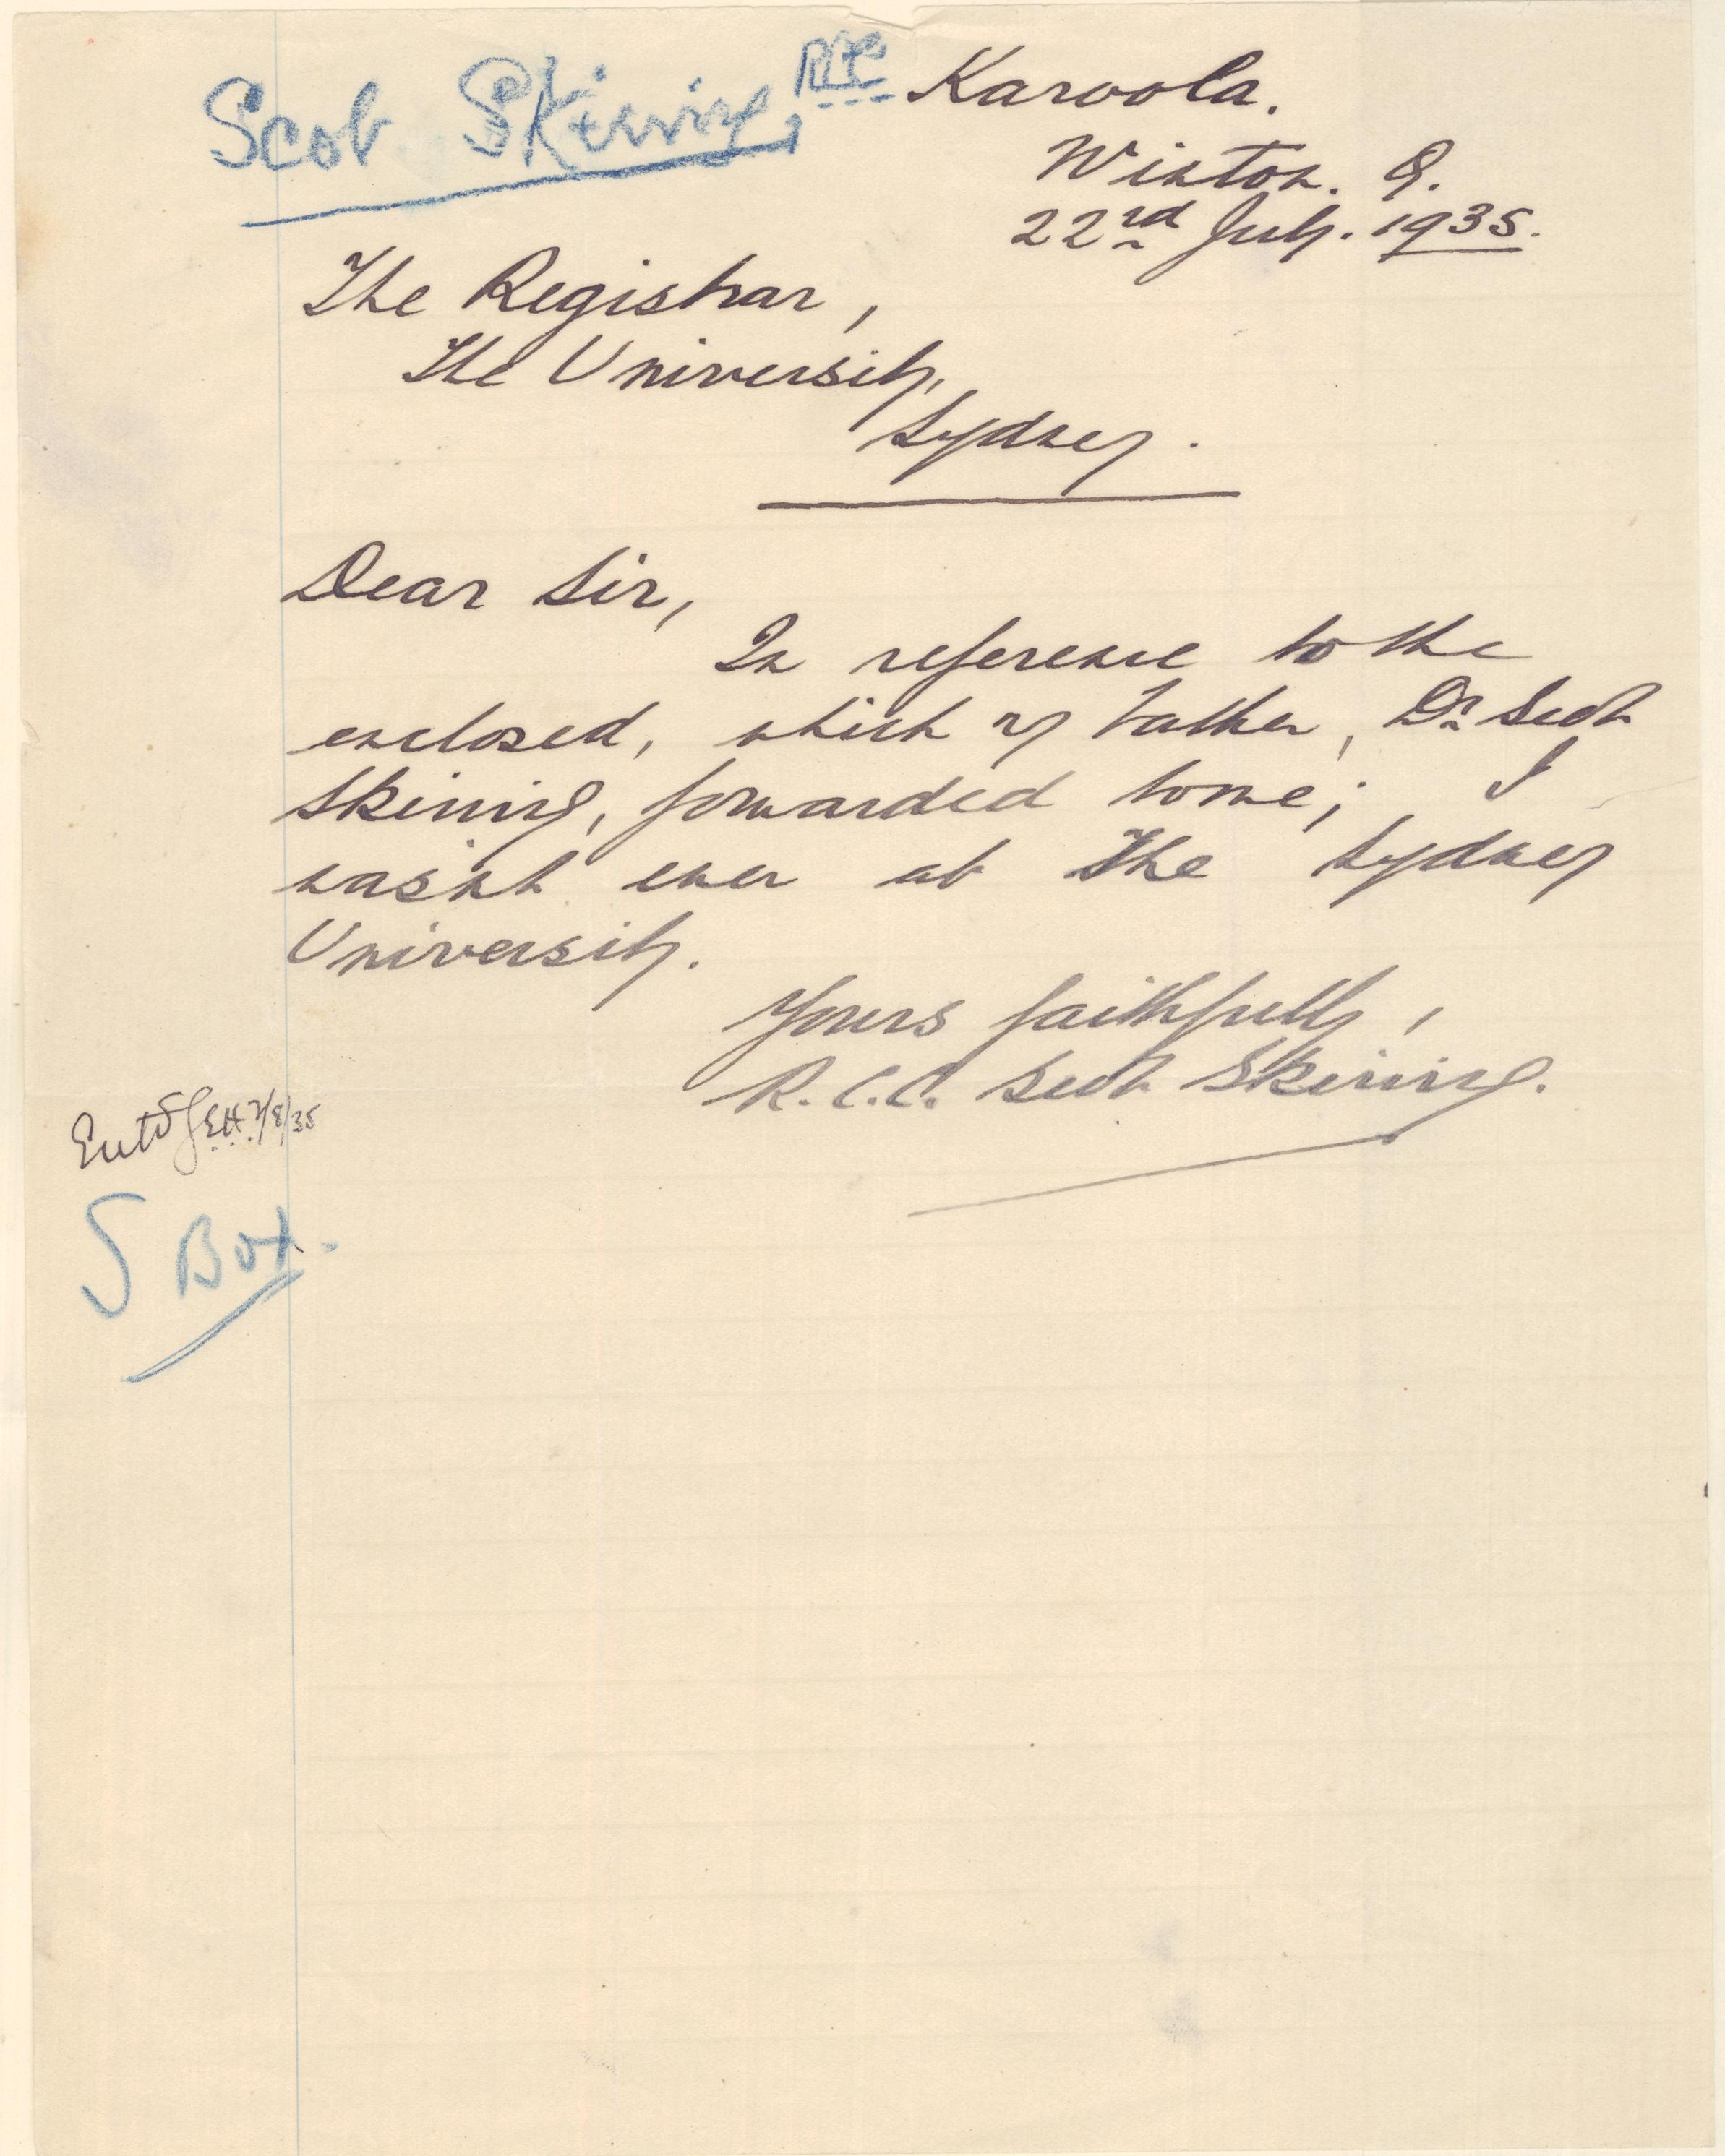 Scot Skirving, RCC
Karoola.
Winton. Q.
22nd July. 1935.
The Registrar,
The University,
Sydney.
Dear Sir,
In reference to the
enclosed, which my Father, Dr. Scot
Skirving, forwarded to me; I
wasn't ever at The Sydney
University.
Yours faithfully,
R.C.C. Scot Skirving.
Entd 7/8/35
S Box.